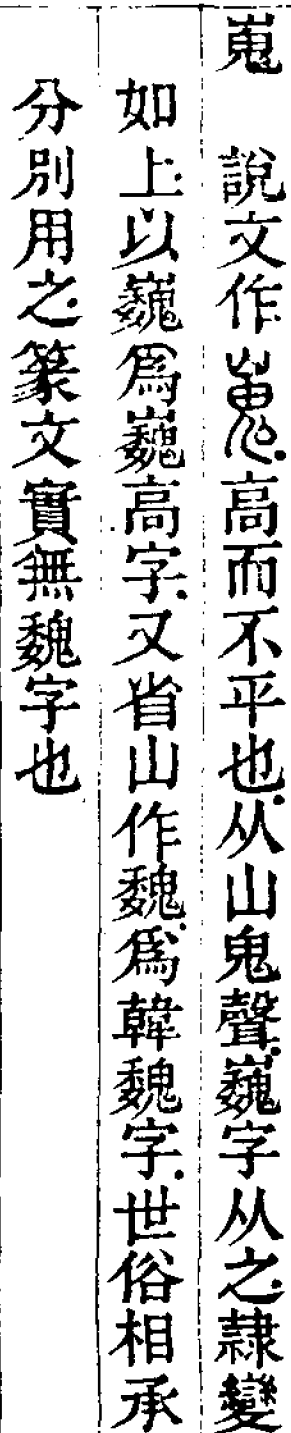 嵬　說文作嵬高而不平也从山鬼聲巍字从之隸變
如上以巍爲巍高字又省山作魏爲韓魏字世俗相承
分別用之篆文實無魏字也